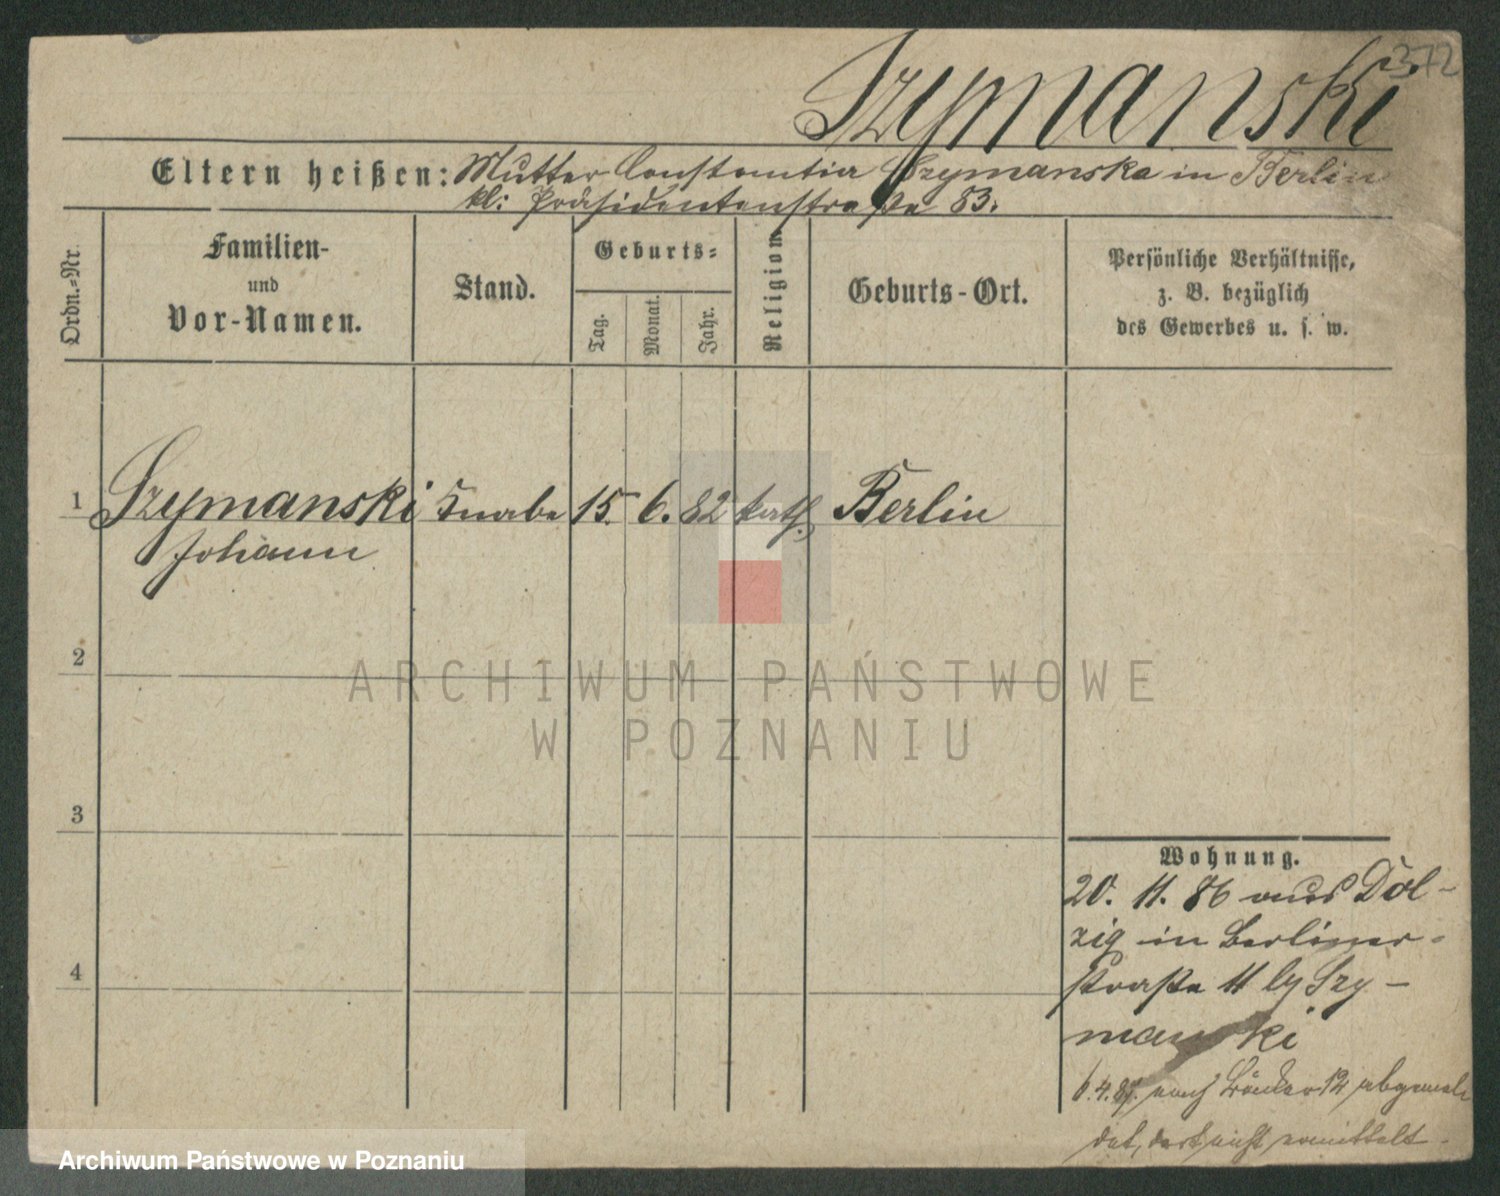 372
Szymanski
Eltern heißen: Mutter Constantia Szymanska in Berlin
kl: Präsidentenstraße 83.
Ordn.-Nr.
Familien-
und
Vor-Namen.
Stand.
Geburts-
Tag.
Monat.
Jahr.
Religion.
Geburts-Ort.
Persönliche Verhältnisse,
z. B. bezüglich
des Gewerbes u. s. w.
1 Szymanski Knabe 15. 6. 82 kath. Berlin
Johann
2
3
4
Wohnung.
20. 11. 86 aus Dol-
zig in Berliner-
straße 11 by Szy-
manski
6.4.87. nach Bäcker 12 abgemel-
det, dort nicht ermittelt.
ARCHIWUM PAŃSTWOWE
W POZNANIU
Archiwum Państwowe w Poznaniu